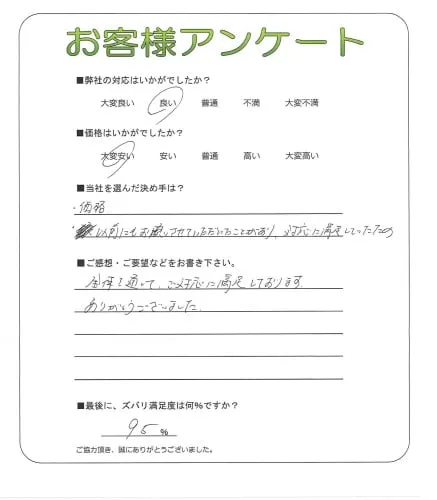 お客様アンケート
■弊社の対応はいかがでしたか?
大変良い 良い 普通 不満 大変不満
■価格はいかがでしたか?
大変安い 安い 普通 高い 大変高い
■当社を選んだ決め手は?
・価格
・以前にもお願いさせていただいたことがあり、対応に満足していたため
■ご感想・ご要望などをお書き下さい。
全体を通して、ご対応に満足しております。
ありがとうございました。
■最後に、ズバリ満足度は何%ですか?
95 %
ご協力頂き、誠にありがとうございました。